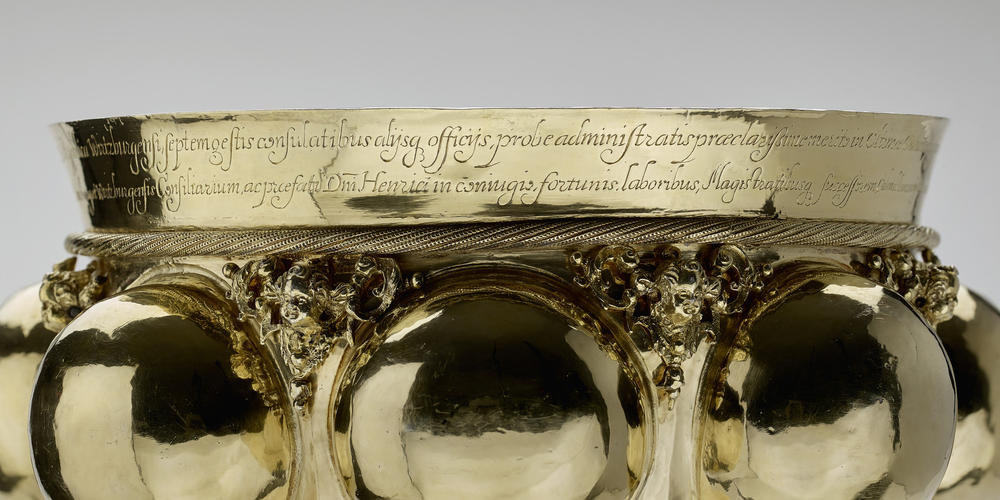 Wirtzburgensi, septem gestis consulatibus alijsq, officijs, probe administratis præclarissime merito in
Wirtzburgensis Consiliarium, ac præfati Dm̃ Henrici in coniugio, fortunis, laboribus, Magistratibusq, successorem